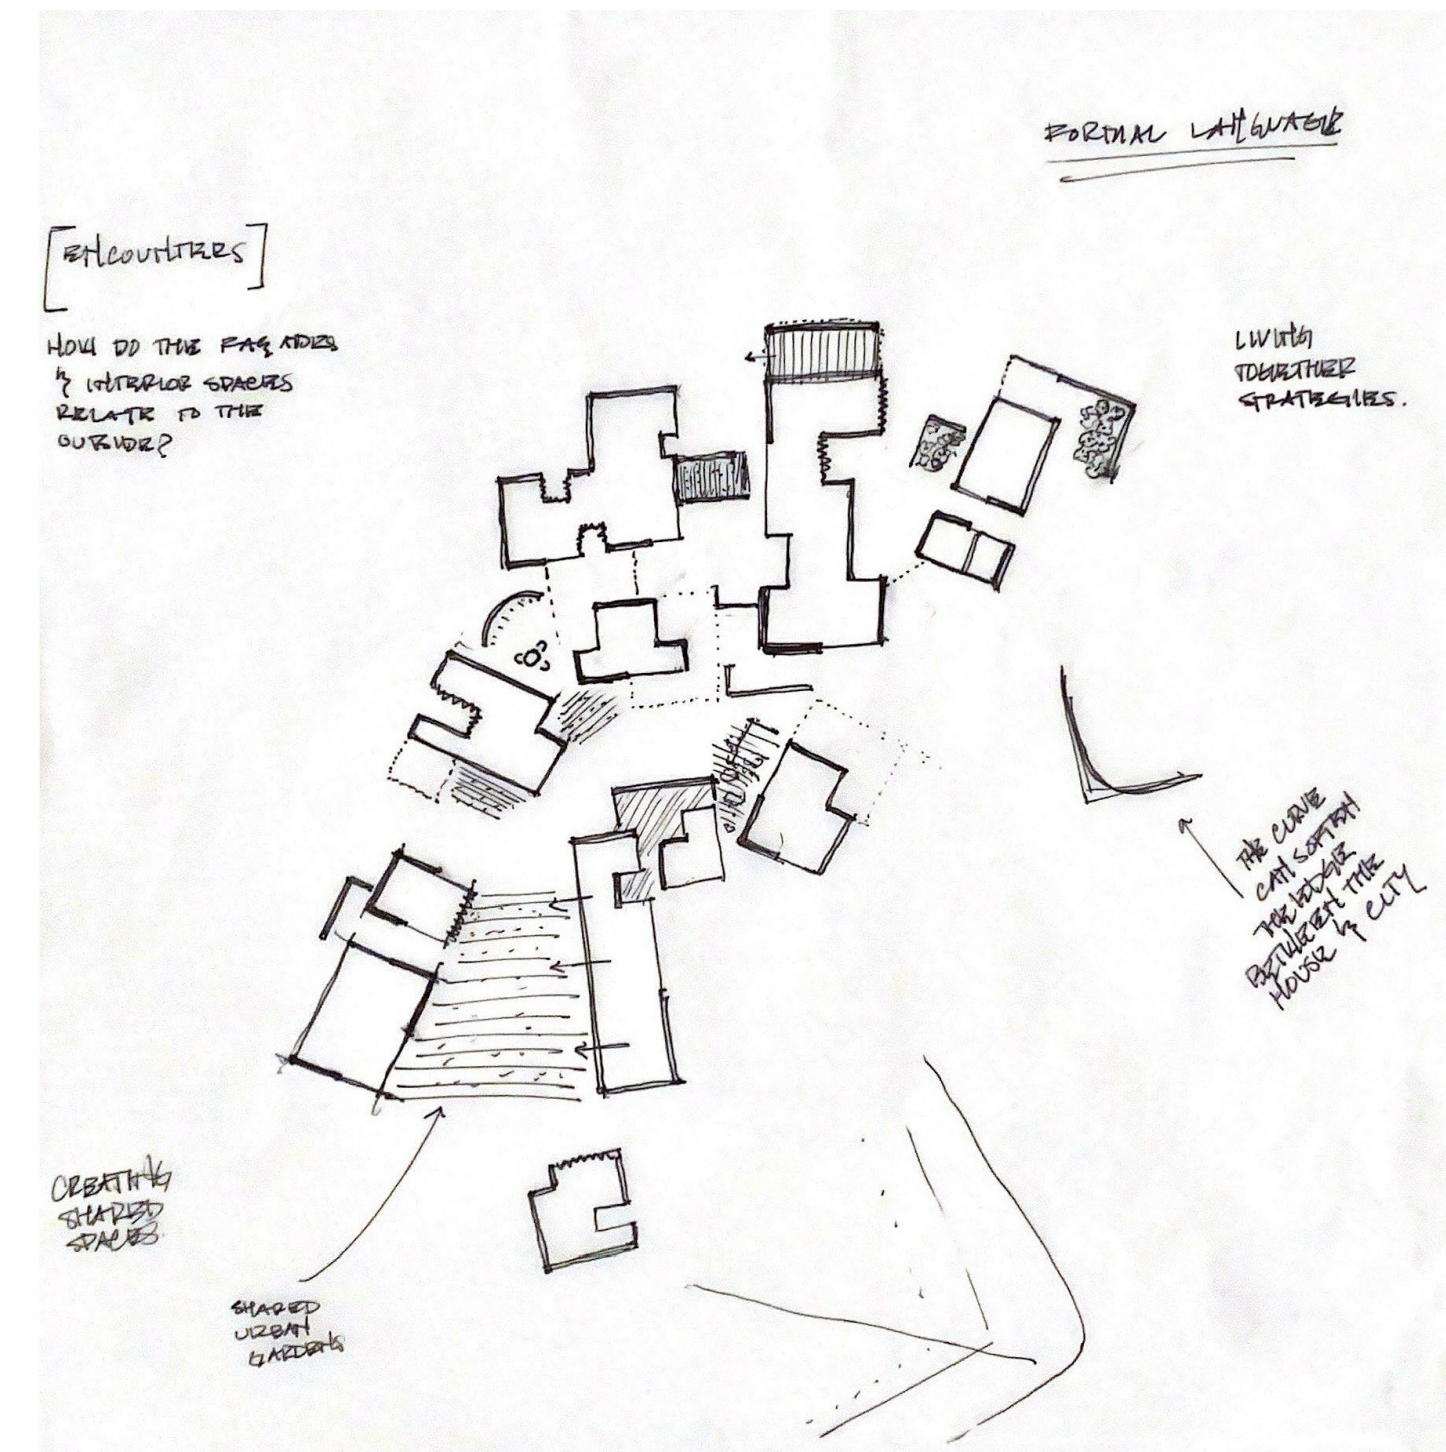 FORMAL LANGUAGE
[ENCOUNTERS]
HOW DO THE FAÇADES
& INTERIOR SPACES
RELATE TO THE
OUTSIDE?
LIVING
TOGETHER
STRATEGIES.
THE CURVE
CAN SOFTEN
THE EDGE
BETWEEN THE
HOUSE & CITY
CREATING
SHARED
SPACES.
SHARED
URBAN
GARDENS